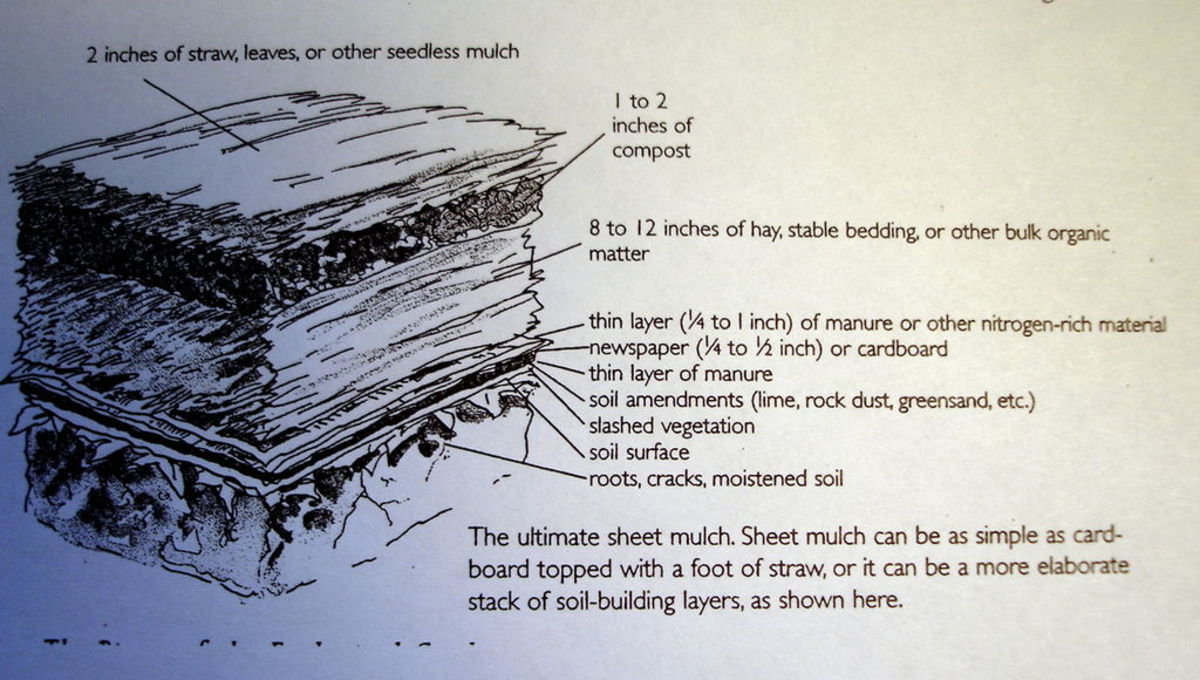 2 inches of straw, leaves, or other seedless mulch
1 to 2
inches of
compost
8 to 12 inches of hay, stable bedding, or other bulk organic
matter
thin layer (¼ to 1 inch) of manure or other nitrogen-rich material
newspaper (¼ to ½ inch) or cardboard
thin layer of manure
soil amendments (lime, rock dust, greensand, etc.)
slashed vegetation
soil surface
roots, cracks, moistened soil
The ultimate sheet mulch. Sheet mulch can be as simple as card-
board topped with a foot of straw, or it can be a more elaborate
stack of soil-building layers, as shown here.